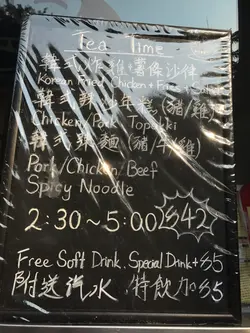 Tea Time
韓式炸雞+薯條沙律
Korean Fried Chicken + Fries +
韓式辣炒年糕(豬/雞)
Chicken/Pork Topokki
韓式辣麵(豬/牛/雞)
Pork/Chicken/Beef
Spicy Noodle
2:30~5:00 $42
Free Soft Drink. Special Drink+$5
附送汽水.特飲加$5